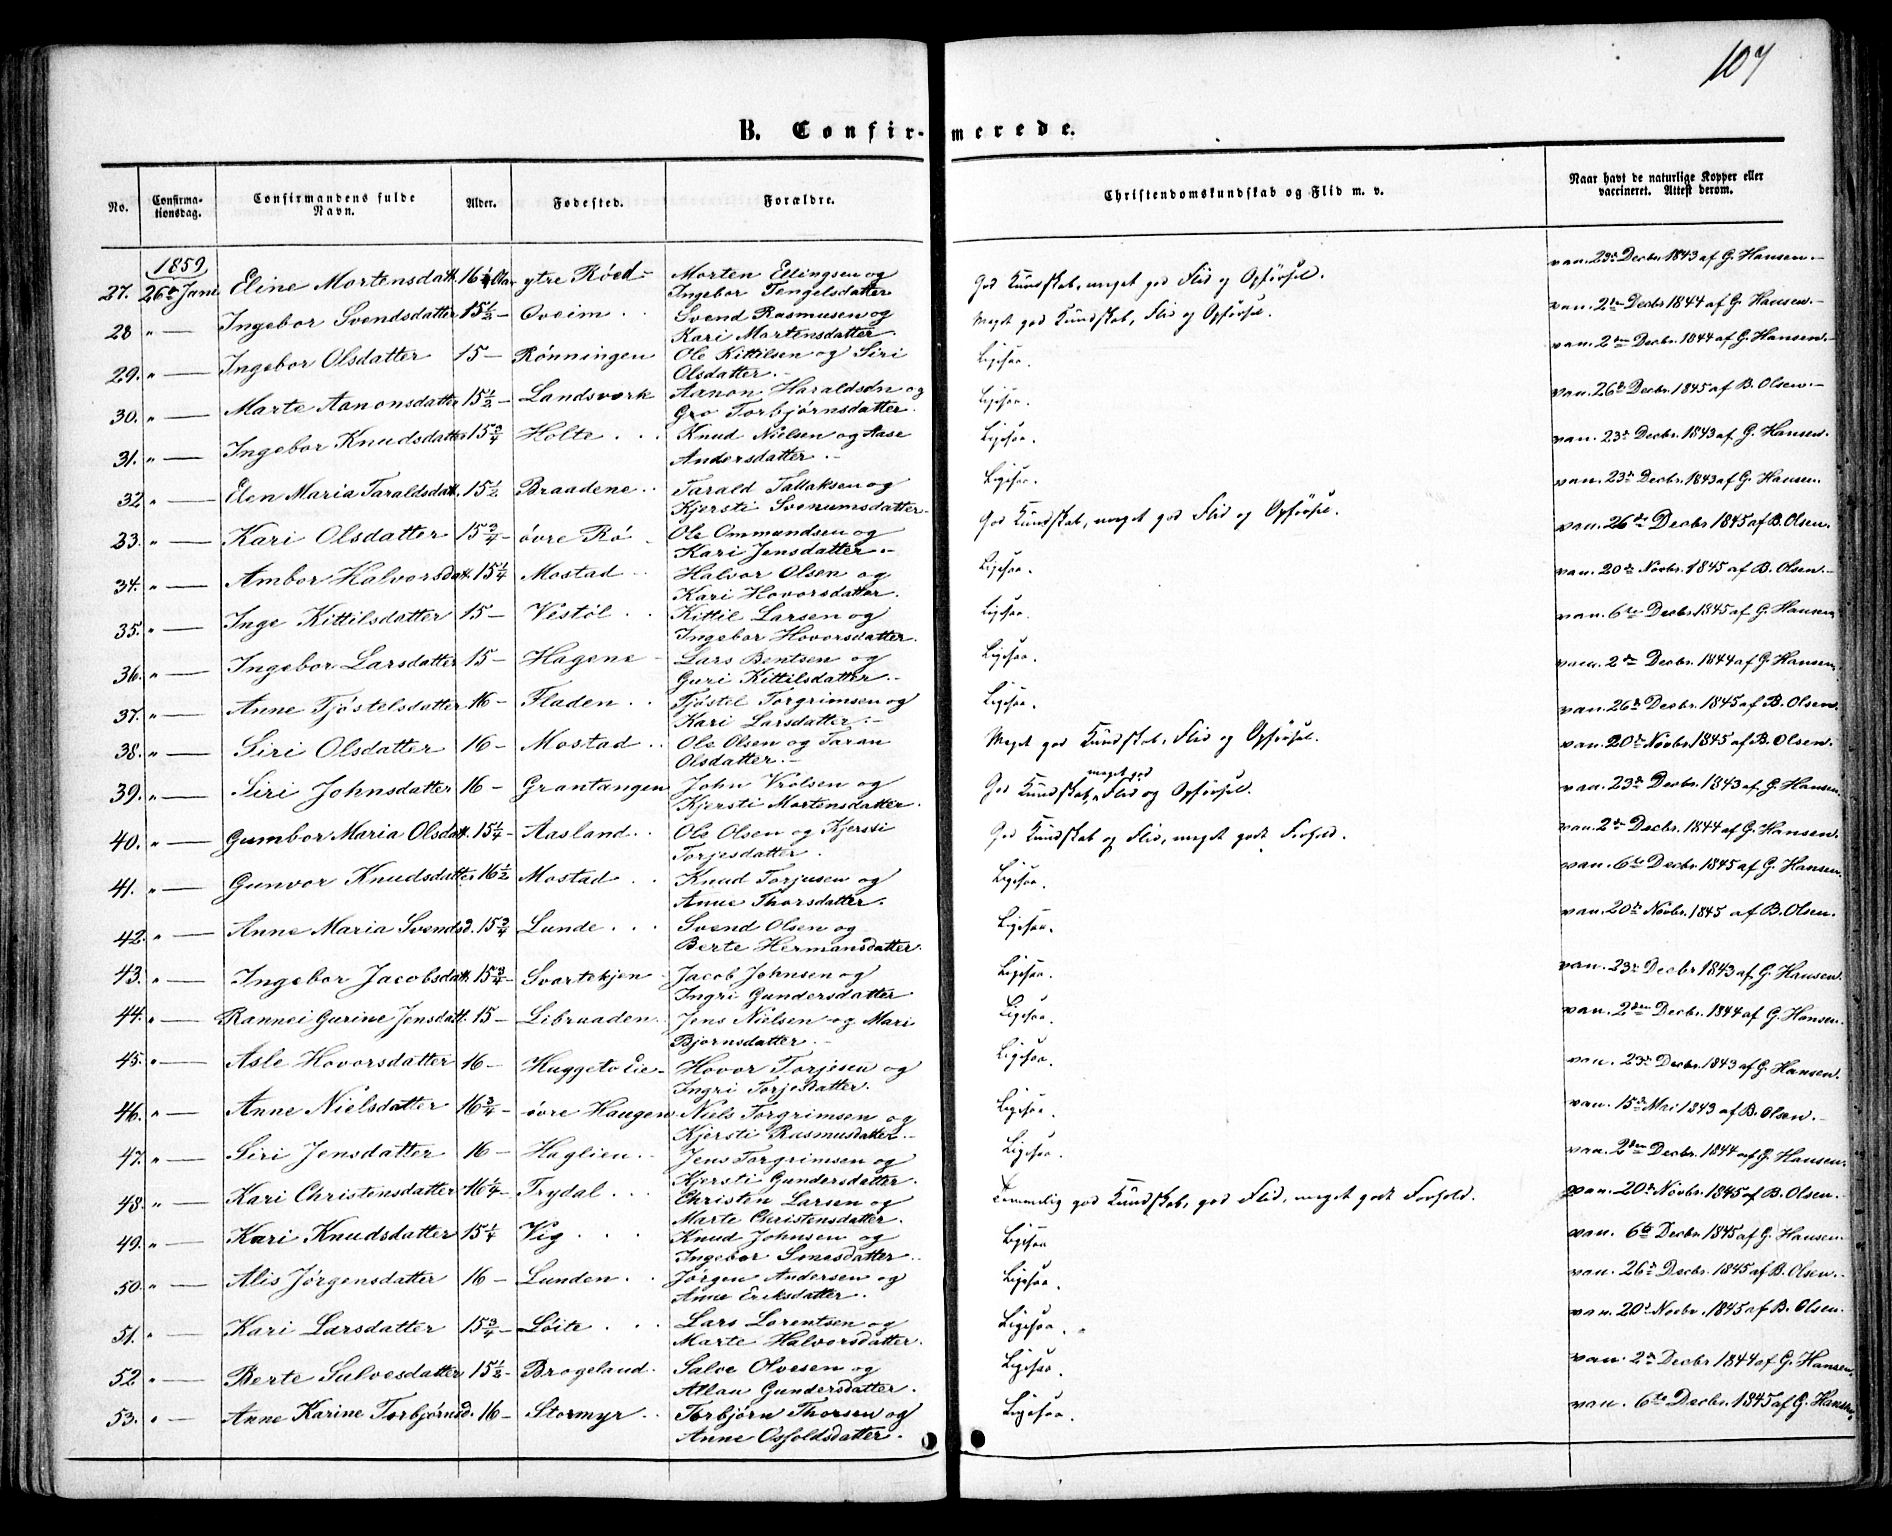 107
B. Confir- merede.
No. Confirma-tionsdag. Confirmandens fulde Navn. Alder. Fødested. Forældre. Christendomskundskab og Flid m. v. Naar havt de naturlige Kopper eller vaccineret. Attest derom.
1859
27. 26de Juni Eline Mortensdatt. 16 ytre Röed Morten Ellingsen og Ingebor Tengelsdatter God Kundskab, meget god Flid og Opförsel. van. 23de Decbr. 1843 af G. Hansen.
28 " Ingebor Svendsdatter 15½ Oveim Svend Rasmusen og Kari Mortensdatter. Meget god Kundskab, Flid og Opförsel. van. 2den Decbr 1844 af G. Hansen.
29. " Ingebor Olsdatter 15 Rönningen Ole Kittilsen og Siri Olsdatter. Ligesaa. van. 2den Decbr. 1844 af G. Hansen.
30. " Marte Aanonsdatter 15½ Landsverk Aanon Haraldsen og Gro Torbjörnsdatter. Ligesaa. van. 26de Decbr. 1845 af B. Olsen.
31. " Ingebor Knudsdatter 15¾ Holte Knud Nielsen og Aase Andersdatter. Ligesaa. van. 23de Decbr. 1843 af G. Hansen.
32 " Elen Maria Taraldsdatt. 15½ Braadene Tarald Tallaksen og Kjersti Svenumsdatter Ligesaa. van. 23de Decbr. 1843 af G. Hansen.
33. " Kari Olsdatter 15¾ övre Rö Ole Ommundsen og Kari Jensdatter. God Kundskab, meget god Flid og Opförsel. van. 26de Decbr. 1845 af B. Olsen.
34. " Ambor Halvorsdatt. 15¼ Mostad Halvor Olsen og Kari Hovorsdatter. Ligesaa. van. 20de Novbr. 1845 af B. Olsen.
35. " Inge Kittilsdatter 15 Vestöl Kittil Larsen og Ingebor Hovorsdatter. Ligesaa. van. 6te Decbr. 1845 af G. Hansen
36. " Ingebor Larsdatter 15 Hagene Lars Bentsen og Guri Kittilsdatter. Ligesaa. van. 2den Decbr. 1844 af G. Hansen.
37. " Anne Tjöstelsdatter 16 Fladen Tjöstel Torgrimsen og Kari Larsdatter. Ligesaa. van. 26de Decbr. 1845 af B. Olsen.
38. " Siri Olsdatter 16 Mostad Ole Olsen og Taran Olsdatter. Meget god Kundskab, Flid og Opförsel. van. 20de Novbr. 1845 af B. Olsen.
39. " Siri Johnsdatter 16 Grantangen John Vrolsen og Kjersti Mortensdatter. God Kundskab, meget god Flid og Opförsel. van. 23de Decbr. 1843 af G. Hansen.
40. " Gumbor Maria Olsdatt. 15¼ Aasland Ole Olsen og Kjersti Torjesdatter. God Kundskab og Flid, meget godt Forhold. van. 2den Decbr. 1844 af G. Hansen.
41. " Gunvor Knudsdatter 16½ Mostad Knud Torjusen og Anne Thorsdatter. Ligesaa. van. 6te Decbr. 1845 af G. Hansen.
42. " Anne Maria Svendsd. 15¾ Lunde Svend Olsen og Berte Hermansdatter. Ligesaa. van. 20de Novbr. 1845 af B. Olsen.
43. " Ingebor Jacobsdatt. 15¾ Svartekjen Jacob Johnsen og Ingri Gundersdatter Ligesaa. van. 23de Decbr 1843 af G. Hansen.
44. " Rannei Gurine Jensdatt. 15 Libraaden Jens Nielsen og Mari Bjornsdatter. Ligesaa. van. 2den Decbr. 1844 af G. Hansen.
45. " Asle Hovorsdatter 16 Huggeto Eie Hovor Torjesen og Ingri Torjesdatter. Ligesaa. van. 23de Decbr. 1843 af G. Hansen.
46. " Anne Nielsdatter 16¾ övre Haugen Niels Torgrimsen og Kjersti Rasmusdatter. Ligesaa. van. 15de Mai 1843 af B. Olsen.
47. " Siri Jensdatter 16 Haglien Jens Torgrimsen og Kjersti Gundersdatter. Ligesaa. van. 2den Decbr. 1844 af G. Hansen.
48. " Kari Christensdatter 16¼ Trydal Christen Larsen og Marte Christensdatter. Temmelig god Kundskab, god Flid, meget godt Forhold. van. 20de Novbr. 1845 af B. Olsen.
49. " Kari Knudsdatter 15¼ Vig Knud Johnsen og Ingebor Simesdatter Ligesaa van. 6te Decbr. 1845 af G. Hansen.
50. " Alis Jörgensdatter 16 Lunden Jörgen Andersen og Anne Eriksdatter. Ligesaa. van. 26de Decbr. 1845 af B. Olsen.
51. " Kari Larsdatter 15¾ Löite Lars Lorentsen og Marte Halvorsdatter. Ligesaa. van. 20de Novbr. 1845 af B. Olsen.
52 " Berte Salvesdatter 15½ Brogeland Salve Olvesen og Atlau Gundersdatter. Ligesaa. van. 2den Decbr 1844 af G. Hansen.
53. " Anne Karine Torbjörnsd. 16 Stormyr Torbjörn Thorsen og Anne Osfoldsdatter. Ligesaa. van. 6te Decbr. 1845 af G. Hansen